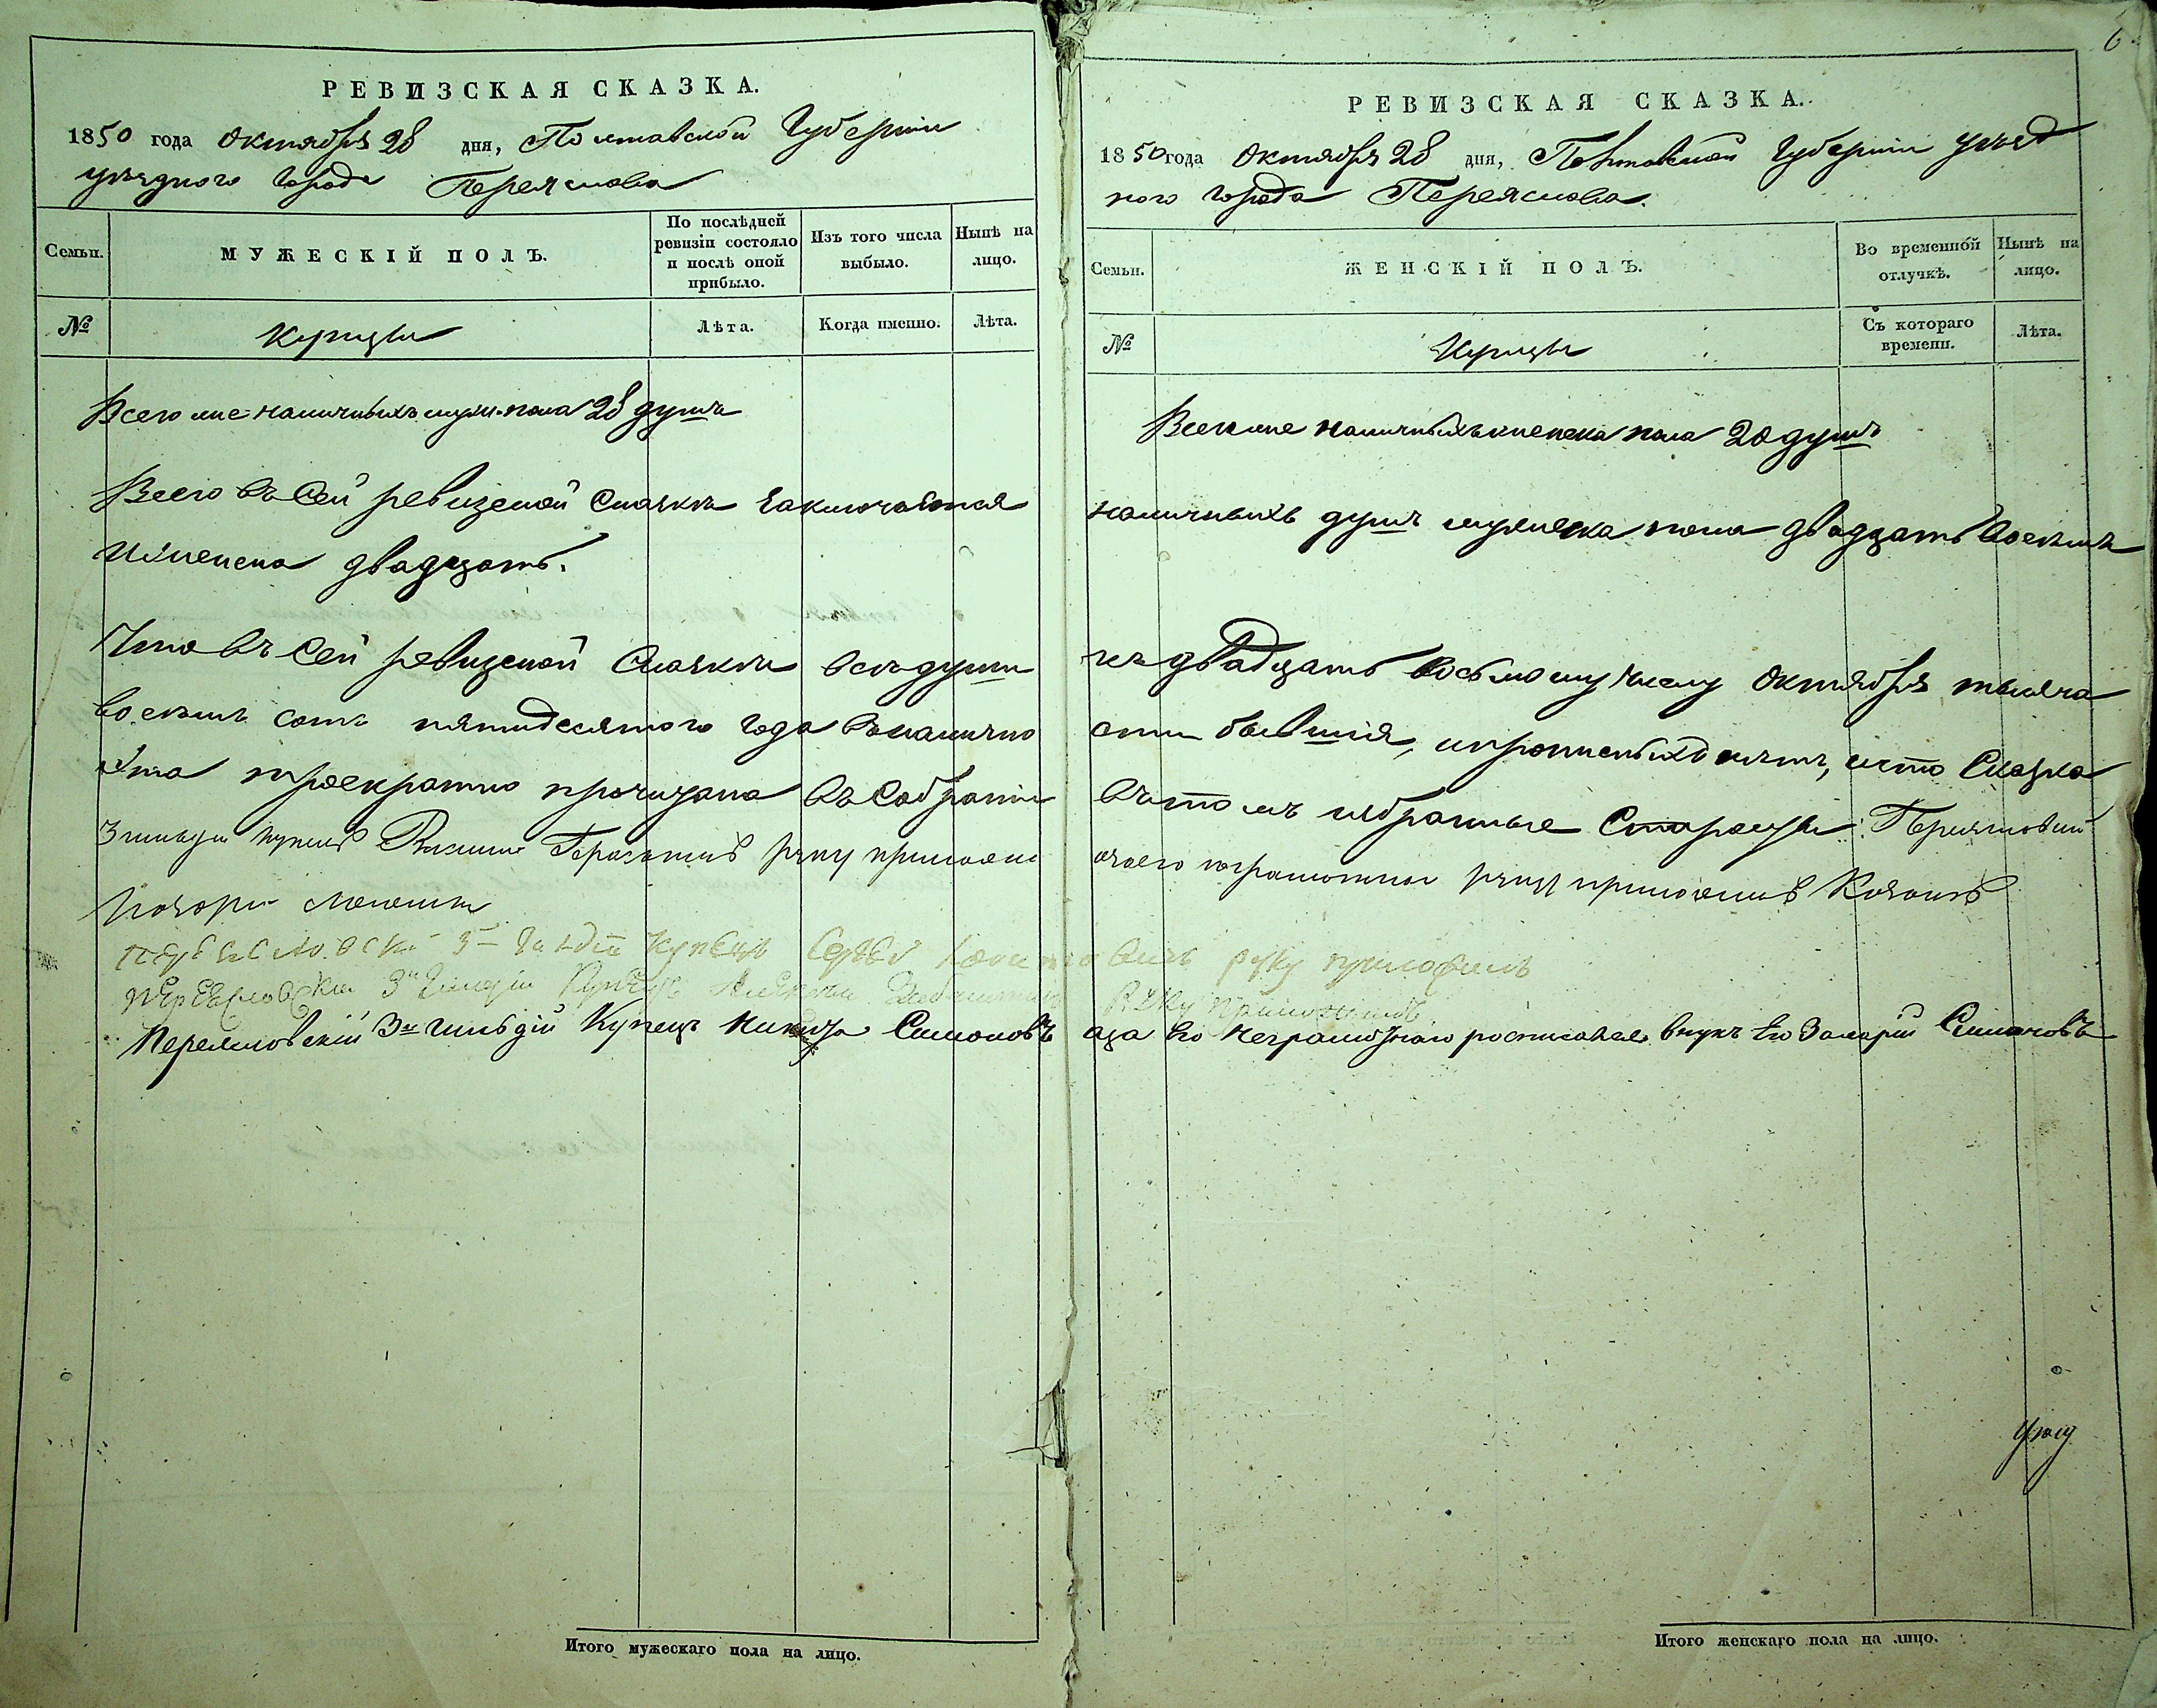 РЕВИЗСКАЯ СКАЗКА.
1850 года Октября 28 дня, Полтавской Губернии
уѣзднаго города Переяслова
Семьи.
МУЖЕСКІЙ ПОЛЪ.
По послѣдней ревизіи состояло и послѣ оной прибыло.
Изъ того числа выбыло.
Нынѣ на лицо.
№
Купцы
Лѣта.
Когда именно.
Лѣта.
Всего же наличныхъ муж. пола 28 душъ
Всего въ сей ревизской сказкѣ заключается
и женска двадцать.
Что въ сей ревизской сказкѣ всѣ души
восемь сотъ пятидесятого года въ налично
эта троекратно прочитана въ собраніи
3 гильдіи купецъ руку приложилъ
3й гильдіи купецъ
3й гильдіи
Переясловскій 3й гильдіи Купецъ Никита Симоновъ
Итого мужескаго пола на лицо.
6
РЕВИЗСКАЯ СКАЗКА.
1850 года Октября 28 дня, Полтавской Губерніи уѣзд
ного города Переяслова.
Семьи.
ЖЕНСКІЙ ПОЛЪ.
Во временной отлучкѣ.
Нынѣ на лицо.
№
Купцы
Съ котораго времени.
Лѣта.
Всего же наличныхъ женска пола 20 душъ
наличныхъ душъ мужеска пола двадцать восемь
къ двадцать восьмому числу Октября тысяча
сти бывшія, и прописныхъ нѣтъ, и что Сказка
въ томъ избранные Старосты: Переясловскій
руку приложилъ
руку приложилъ
руку приложилъ
аза его неграмотнаго росписался внукъ его Захарій Симоновъ
Итого женскаго пола на лицо.